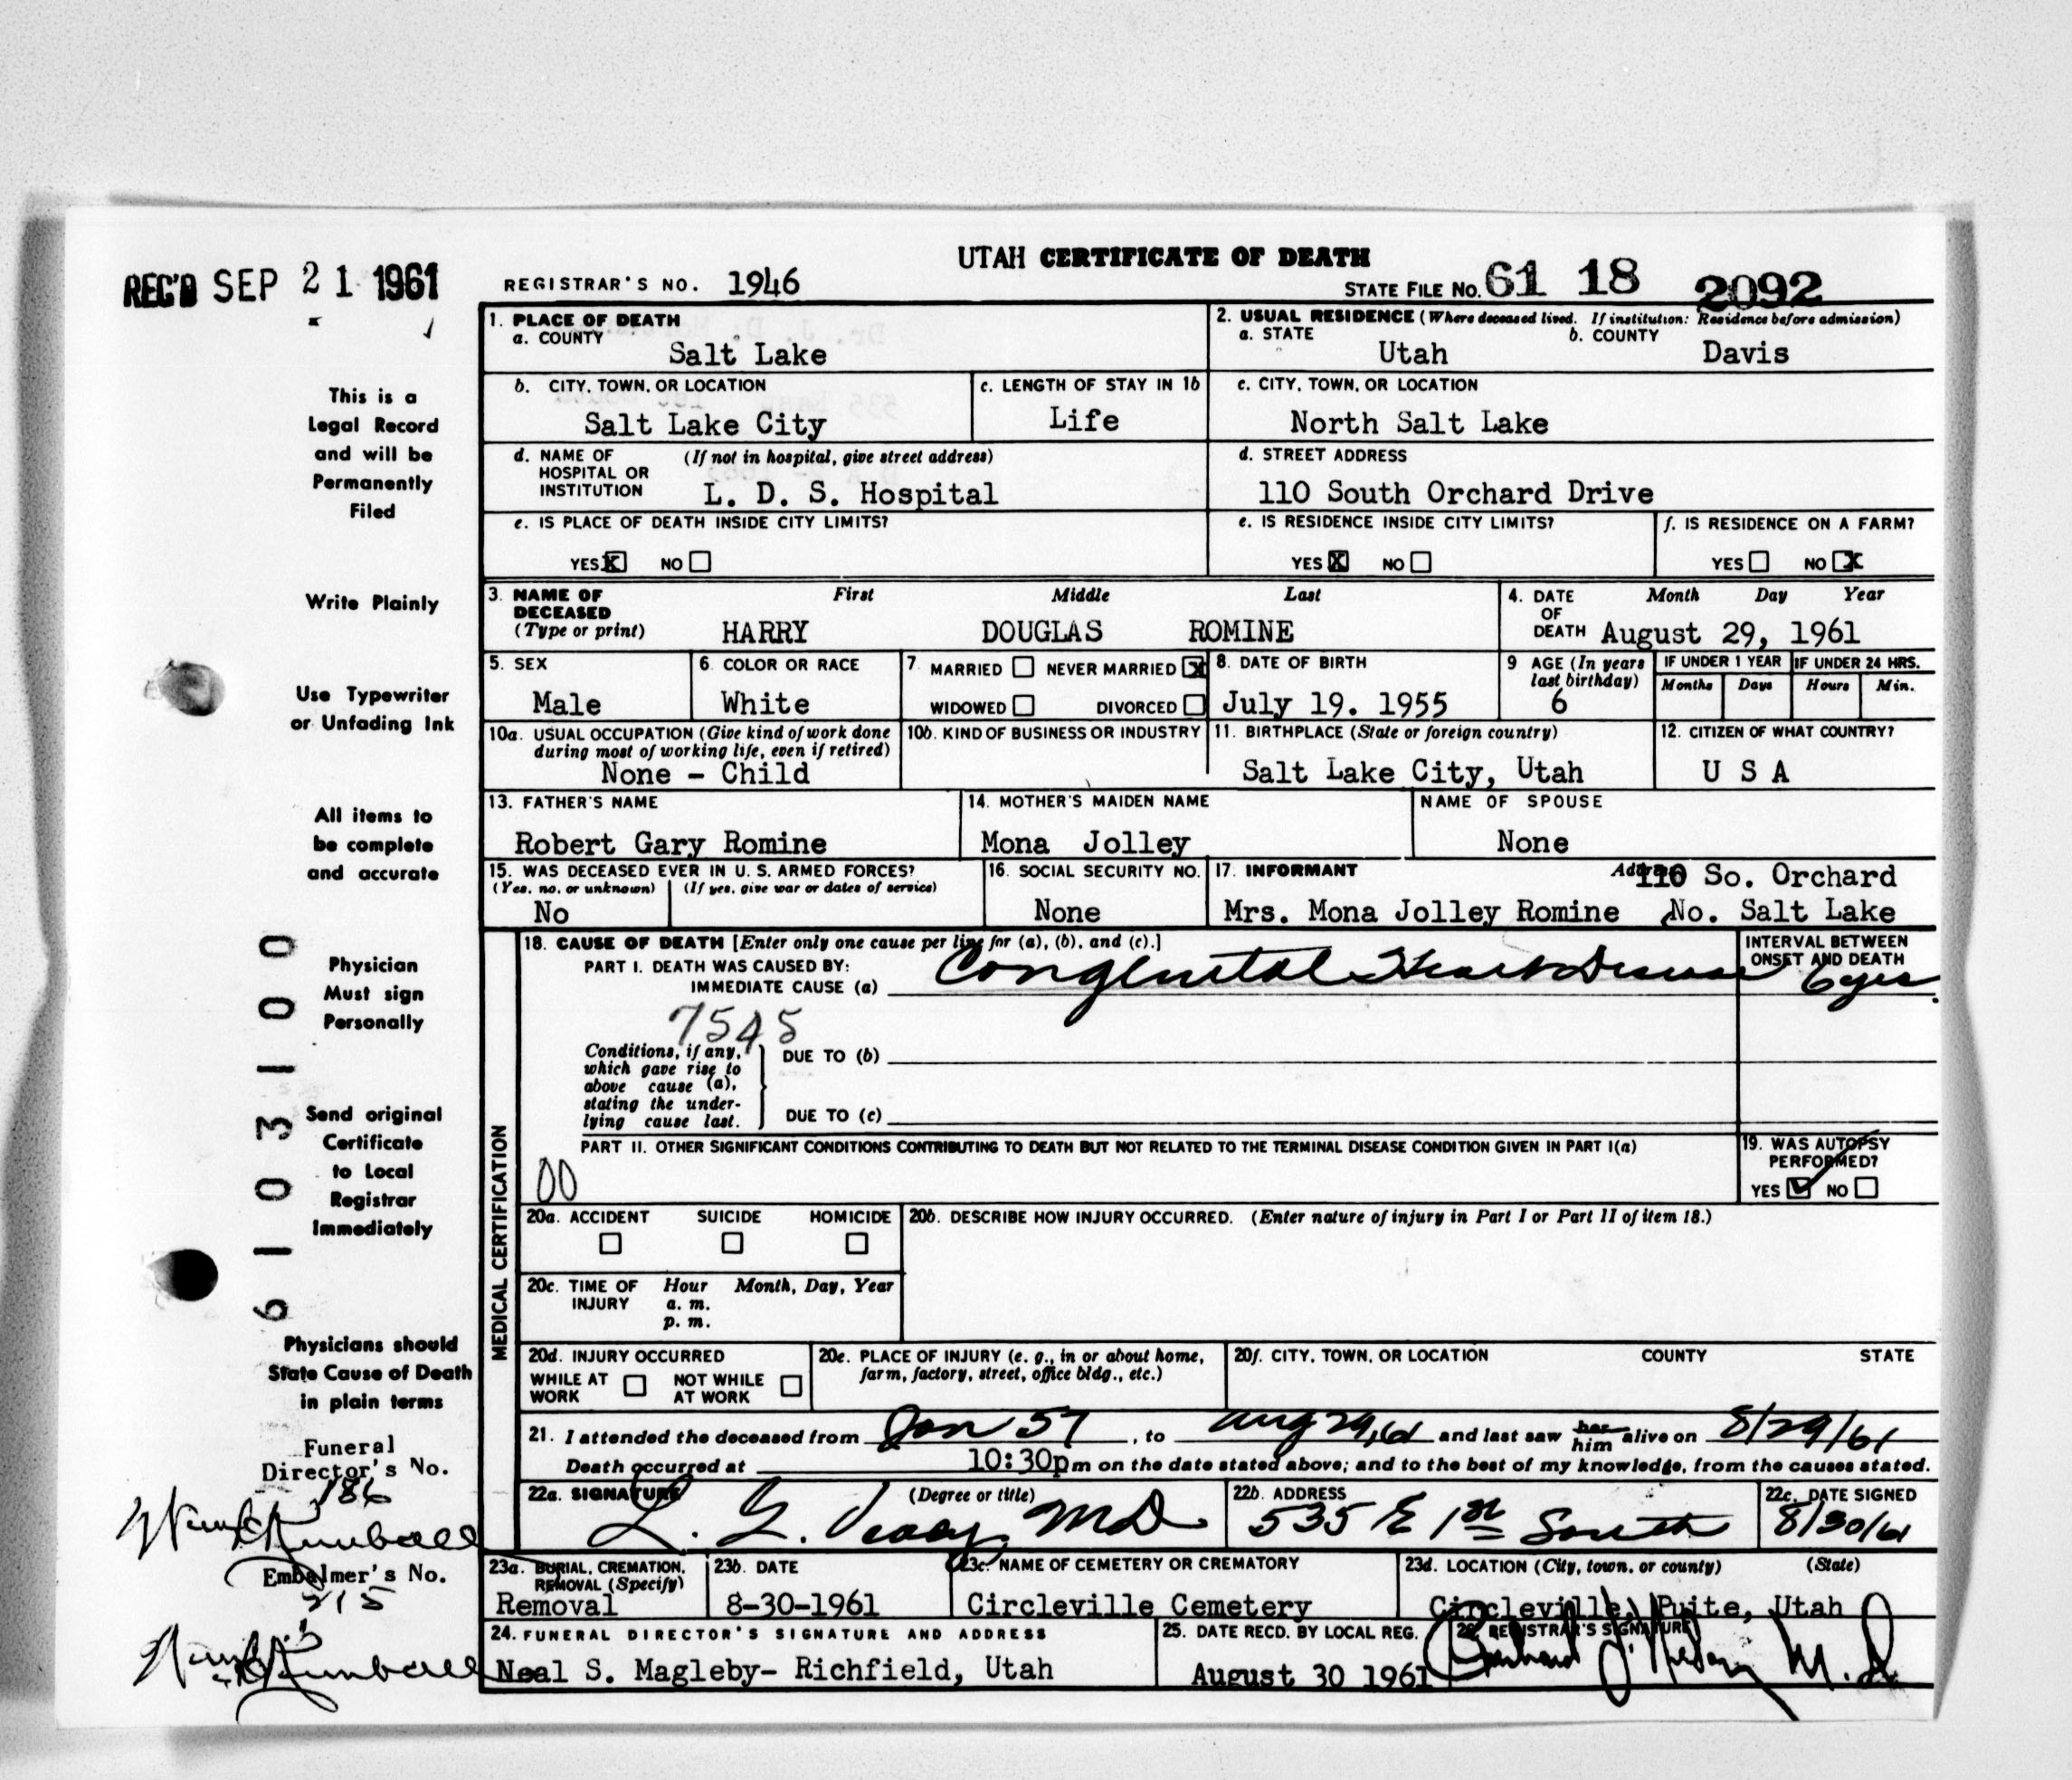 UTAH CERTIFICATE OF DEATH
REC'D SEP 21 1961
REGISTRAR'S NO. 1946
STATE FILE No. 61 18 2092
1. PLACE OF DEATH
a. COUNTY
Salt Lake
2. USUAL RESIDENCE (Where deceased lived. If institution: Residence before admission)
a. STATE
Utah
b. COUNTY
Davis
b. CITY, TOWN, OR LOCATION
Salt Lake City
c. LENGTH OF STAY IN 1b
Life
c. CITY, TOWN, OR LOCATION
North Salt Lake
d. NAME OF HOSPITAL OR INSTITUTION
(If not in hospital, give street address)
L. D. S. Hospital
d. STREET ADDRESS
110 South Orchard Drive
e. IS PLACE OF DEATH INSIDE CITY LIMITS?
YES X NO
e. IS RESIDENCE INSIDE CITY LIMITS?
YES X NO
f. IS RESIDENCE ON A FARM?
YES NO X
3. NAME OF DECEASED (Type or print)
First Middle Last
HARRY DOUGLAS ROMINE
4. DATE OF DEATH
Month Day Year
August 29, 1961
5. SEX
Male
6. COLOR OR RACE
White
7. MARRIED NEVER MARRIED X
WIDOWED DIVORCED
8. DATE OF BIRTH
July 19. 1955
9 AGE (In years last birthday)
6
IF UNDER 1 YEAR
Months Days
IF UNDER 24 HRS.
Hours Min.
10a. USUAL OCCUPATION (Give kind of work done during most of working life, even if retired)
None - Child
10b. KIND OF BUSINESS OR INDUSTRY
11. BIRTHPLACE (State or foreign country)
Salt Lake City, Utah
12. CITIZEN OF WHAT COUNTRY?
U S A
13. FATHER'S NAME
Robert Gary Romine
14. MOTHER'S MAIDEN NAME
Mona Jolley
NAME OF SPOUSE
None
15. WAS DECEASED EVER IN U. S. ARMED FORCES?
(Yes, no, or unknown) (If yes, give war or dates of service)
No
16. SOCIAL SECURITY NO.
None
17. INFORMANT
Address 110 So. Orchard
Mrs. Mona Jolley Romine No. Salt Lake
MEDICAL CERTIFICATION
18. CAUSE OF DEATH [Enter only one cause per line for (a), (b), and (c).]
PART I. DEATH WAS CAUSED BY:
IMMEDIATE CAUSE (a) Congenital Heart Disease
INTERVAL BETWEEN ONSET AND DEATH
6 yrs.
7545
Conditions, if any, which gave rise to above cause (a), stating the underlying cause last.
DUE TO (b)
DUE TO (c)
PART II. OTHER SIGNIFICANT CONDITIONS CONTRIBUTING TO DEATH BUT NOT RELATED TO THE TERMINAL DISEASE CONDITION GIVEN IN PART I(a)
00
19. WAS AUTOPSY PERFORMED?
YES ✓ NO
20a. ACCIDENT SUICIDE HOMICIDE
20b. DESCRIBE HOW INJURY OCCURRED. (Enter nature of injury in Part I or Part II of item 18.)
20c. TIME OF INJURY
Hour Month, Day, Year
a. m.
p. m.
20d. INJURY OCCURRED
WHILE AT WORK NOT WHILE AT WORK
20e. PLACE OF INJURY (e. g., in or about home, farm, factory, street, office bldg., etc.)
20f. CITY, TOWN, OR LOCATION COUNTY STATE
21. I attended the deceased from Jan 57, to Aug 29, 61 and last saw her him alive on 8/29/61
Death occurred at 10:30pm on the date stated above; and to the best of my knowledge, from the causes stated.
22a. SIGNATURE (Degree or title)
L. G. MD
22b. ADDRESS
535 E 1st South
22c. DATE SIGNED
8/30/61
23a. BURIAL, CREMATION, REMOVAL (Specify)
Removal
23b. DATE
8-30-1961
23c. NAME OF CEMETERY OR CREMATORY
Circleville Cemetery
23d. LOCATION (City, town, or county) (State)
Circleville, Puite, Utah
24. FUNERAL DIRECTOR'S SIGNATURE AND ADDRESS
Neal S. Magleby- Richfield, Utah
25. DATE RECD. BY LOCAL REG.
August 30 1961
26. REGISTRAR'S SIGNATURE
M. D.
This is a
Legal Record
and will be
Permanently
Filed
Write Plainly
Use Typewriter
or Unfading Ink
All items to
be complete
and accurate
Physician
Must sign
Personally
Send original
Certificate
to Local
Registrar
Immediately
Physicians should
State Cause of Death
in plain terms
Funeral
Director's No.
186
Kimball
Embalmer's No.
215
Kimball
6103100